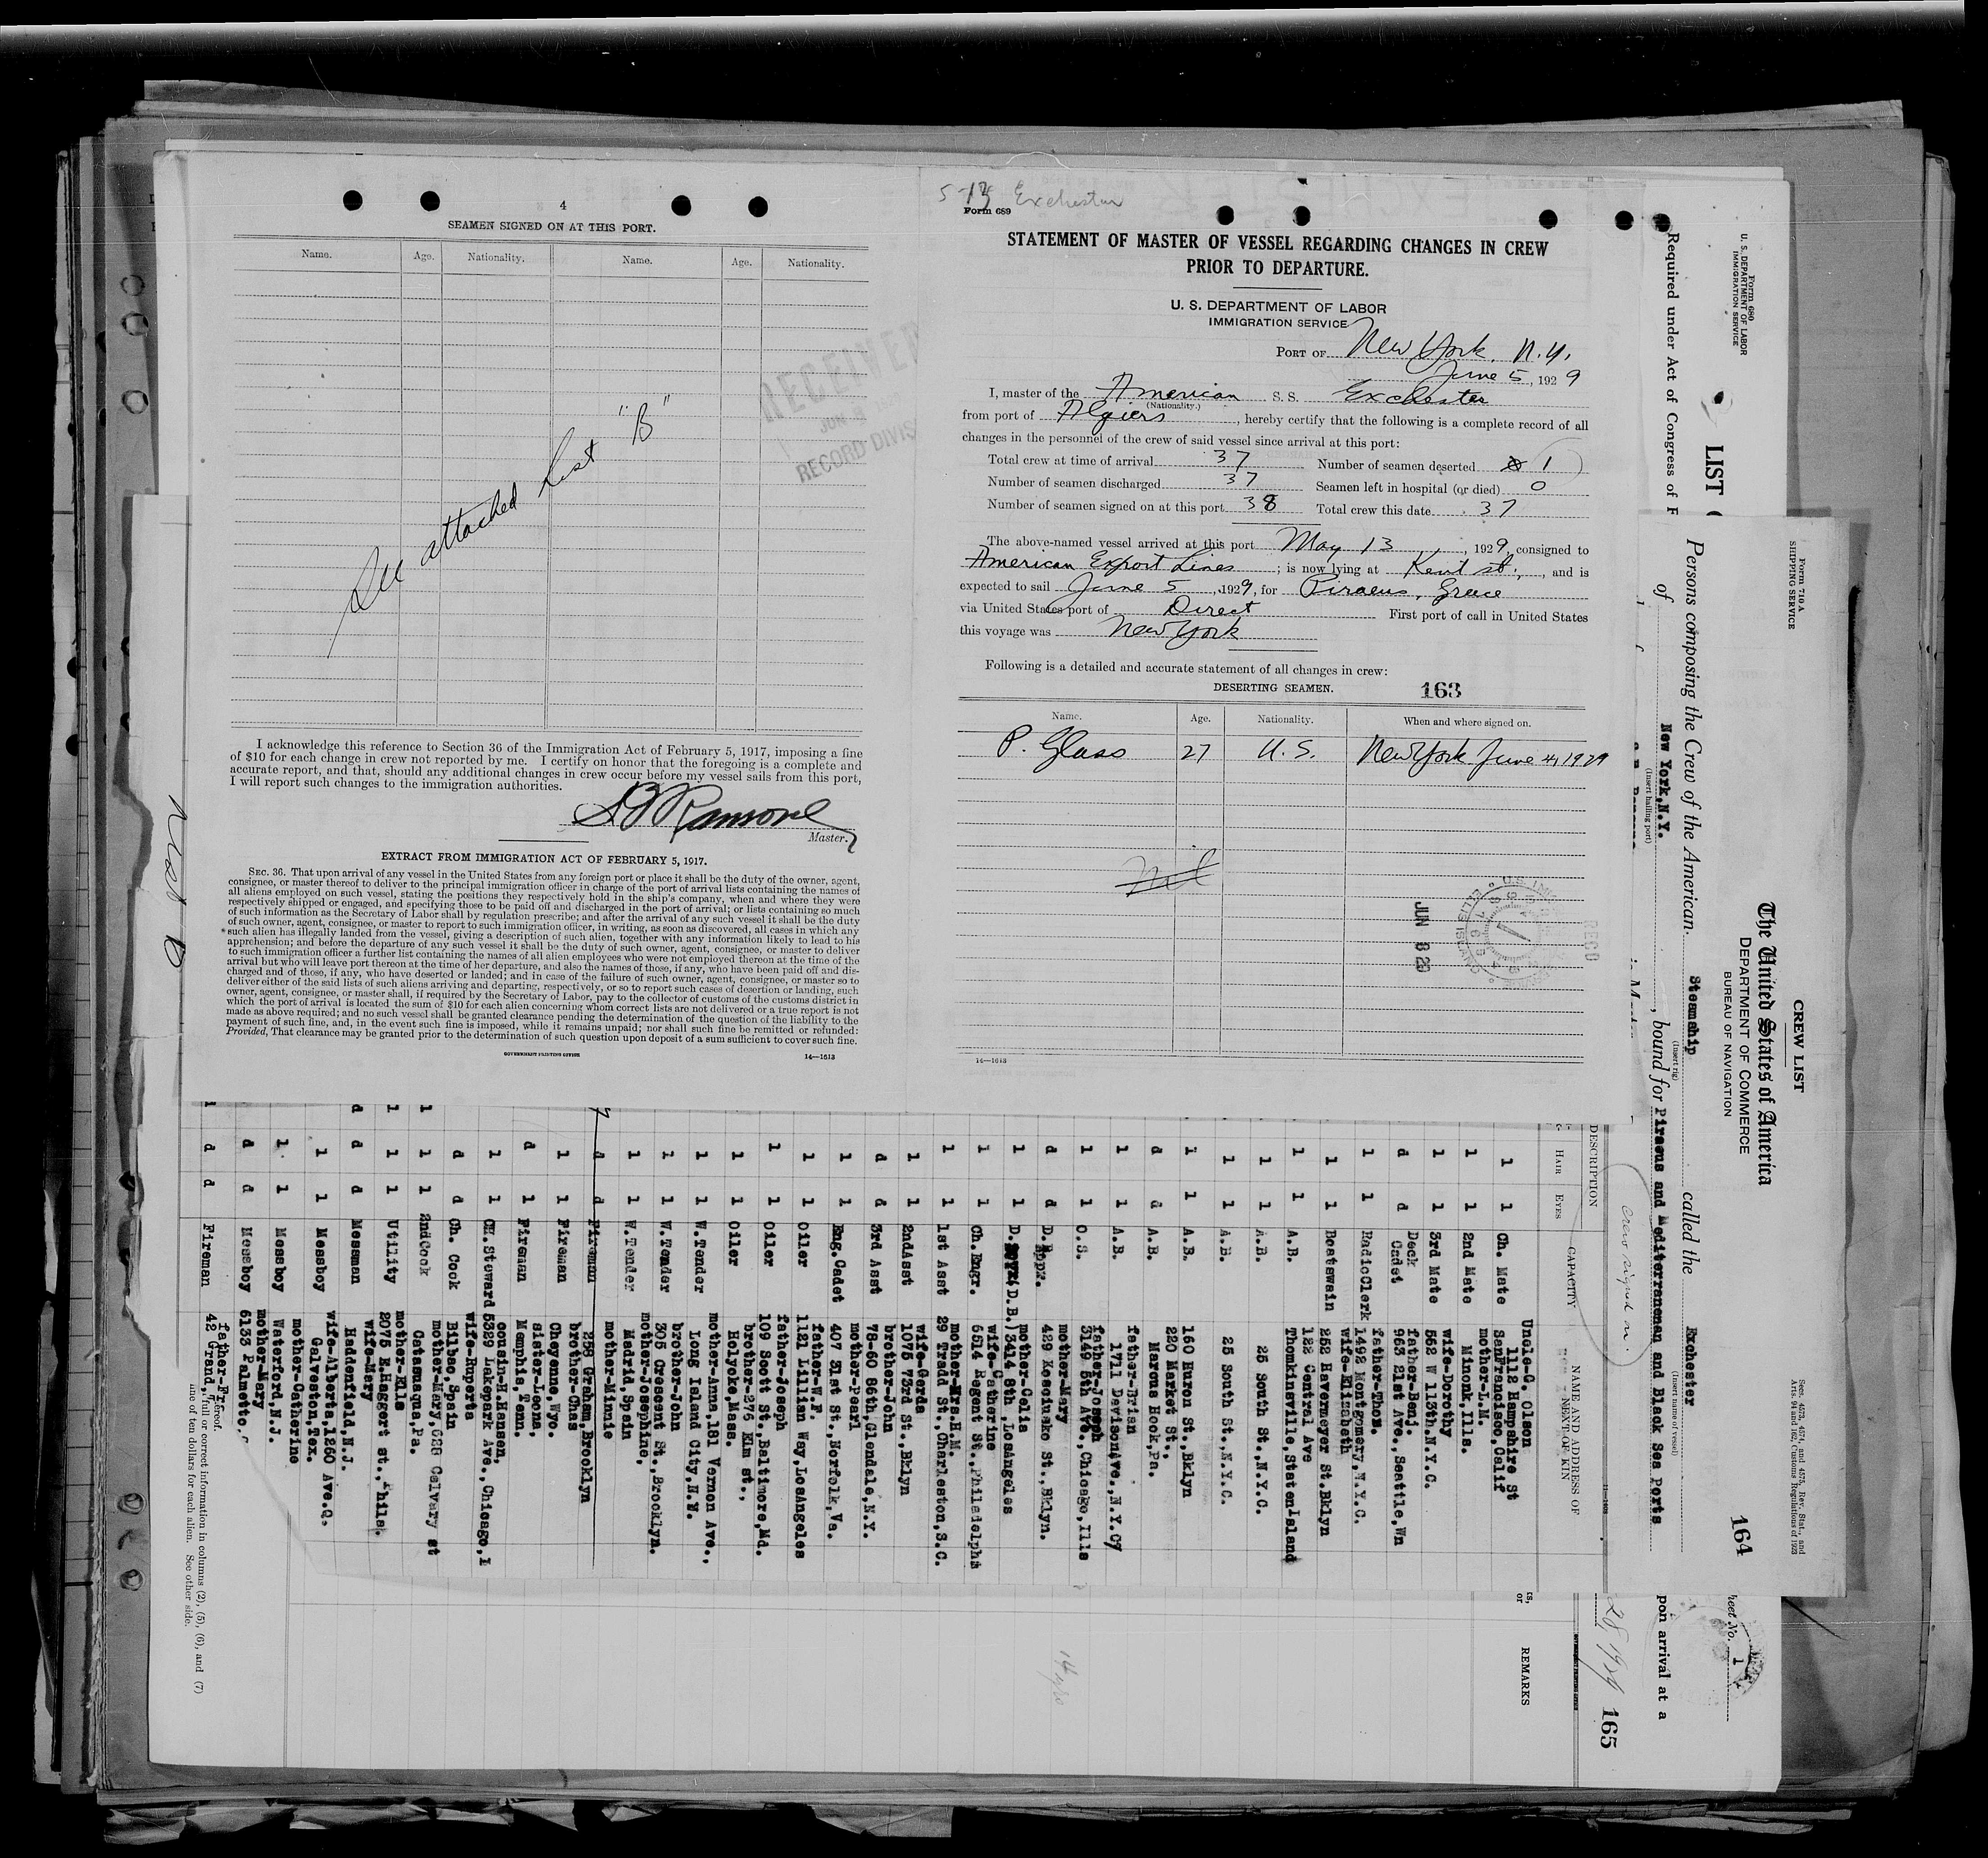 4
SEAMEN SIGNED ON AT THIS PORT.
Name. Age. Nationality. Name. Age. Nationality.
See attached list "B"
RECEIVED
JUN
RECORD DIVIS
I acknowledge this reference to Section 36 of the Immigration Act of February 5, 1917, imposing a fine
of $10 for each change in crew not reported by me. I certify on honor that the foregoing is a complete and
accurate report, and that, should any additional changes in crew occur before my vessel sails from this port,
I will report such changes to the immigration authorities.
Ransone
Master.
EXTRACT FROM IMMIGRATION ACT OF FEBRUARY 5, 1917.
SEC. 36. That upon arrival of any vessel in the United States from any foreign port or place it shall be the duty of the owner, agent,
consignee, or master thereof to deliver to the principal immigration officer in charge of the port of arrival lists containing the names of
all aliens employed on such vessel, stating the positions they respectively hold in the ship's company, when and where they were
respectively shipped or engaged, and specifying those to be paid off and discharged in the port of arrival; or lists containing so much
of such information as the Secretary of Labor shall by regulation prescribe; and after the arrival of any such vessel it shall be the duty
of such owner, agent, consignee, or master to report to such immigration officer, in writing, as soon as discovered, all cases in which any
such alien has illegally landed from the vessel, giving a description of such alien, together with any information likely to lead to his
apprehension; and before the departure of any such vessel it shall be the duty of such owner, agent, consignee, or master to deliver
to such immigration officer a further list containing the names of all alien employees who were not employed thereon at the time of the
arrival but who will leave port thereon at the time of her departure, and also the names of those, if any, who have been paid off and dis-
charged and of those, if any, who have deserted or landed; and in case of the failure of such owner, agent, consignee, or master so to
deliver either of the said lists of such aliens arriving and departing, respectively, or so to report such cases of desertion or landing, such
owner, agent, consignee, or master shall, if required by the Secretary of Labor, pay to the collector of customs of the customs district in
which the port of arrival is located the sum of $10 for each alien concerning whom correct lists are not delivered or a true report is not
made as above required; and no such vessel shall be granted clearance pending the determination of the question of the liability to the
payment of such fine, and, in the event such fine is imposed, while it remains unpaid; nor shall such fine be remitted or refunded:
Provided, That clearance may be granted prior to the determination of such question upon deposit of a sum sufficient to cover such fine.
GOVERNMENT PRINTING OFFICE 14—1613
5-13 Exchester
Form 689
STATEMENT OF MASTER OF VESSEL REGARDING CHANGES IN CREW
PRIOR TO DEPARTURE.
U. S. DEPARTMENT OF LABOR
IMMIGRATION SERVICE
PORT OF New York. N.Y.
June 5, 1929
I, master of the American S. S. Exchester
(Nationality.)
from port of Algiers, hereby certify that the following is a complete record of all
changes in the personnel of the crew of said vessel since arrival at this port:
Total crew at time of arrival 37 Number of seamen deserted 1
Number of seamen discharged 37 Seamen left in hospital (or died) 0
Number of seamen signed on at this port 38 Total crew this date 37
The above-named vessel arrived at this port May 13, 1929, consigned to
American Export Lines; is now lying at Kent st., and is
expected to sail June 5, 1929, for Piraeus, Greece
via United States port of Direct First port of call in United States
this voyage was New York
Following is a detailed and accurate statement of all changes in crew:
DESERTING SEAMEN. 163
Name. Age. Nationality. When and where signed on.
P. Glass 27 U.S. New York June 4, 1929
nil
JUN 8 29
REC'D
14—1613
Form 680
U. S. DEPARTMENT OF LABOR
IMMIGRATION SERVICE
LIST
Required under Act of Congress of F
Form 710 A
SHIPPING SERVICE
CREW LIST
The United States of America
DEPARTMENT OF COMMERCE
BUREAU OF NAVIGATION
Secs. 4573, 4574, and 4575, Rev. Stat., and
Arts. 94 and 162, Customs Regulations of 1923
164
Persons composing the Crew of the American Steamship called the Exchester
(Insert rig) (Insert name of vessel)
of New York,N.Y., bound for Piraeus and Mediterranean and Black Sea Ports
(Insert hailing port)
crew signed on
DESCRIPTION
HAIR EYES CAPACITY NAME AND ADDRESS OF NEXT OF KIN
Uncle-G. Olson
l l Ch. Mate 1112 Hampshire St
SanFrancisco,Calif
mother-L.M.
l l 2nd Mate Minonk,Ills.
wife-Dorothy
l l 3rd Mate 562 W 113th,N.Y.C.
Deck father-Benj.
d d Cadet 963 21st Ave.,Seattle,Wn
father-Thos.
l l RadioClerk 1492 Montgomery,N.Y.C.
wife-Elizabeth
l l Boatswain 252 Havermeyer St.Bklyn
122 Central Ave
l l A.B. Thomkinsville,StatenIsland
l l A.B. 25 South St.,N.Y.C.
l l A.B. 25 South St.,N.Y.C.
l l A.B. 160 Huron St.,Bklyn
220 Market St.,
d d A.B. Marcus Hook,Pa.
father-Brian
l l A.B. 1711 DavisonAve.,N.Y.C
father-Joseph
l l O.S. 3149 5th Ave.,Chicago,Ills
mother-Mary
d d D. Appr. 429 Kosciusko St.,Bklyn.
mother-Celia
l l D. (D.B.) 3414 8th ,LosAngeles
wife-Catherine
l l Ch.Engr. 5514 Regent St.,Philadelphi
mother-Mrs.H.M.
l l 1st Asst 29 Tradd St.,Charleston,S.C.
wife-Gerda
l l 2ndAsst 1075 73rd St.,Bklyn
brother-John
d d 3rd Asst 78-60 86th,Glendale,N.Y.
mother-Pearl
l l Eng.Cadet 407 31st St.,Norfolk,Va.
father-W.F.
l l Oiler 1121 Lillian Way,LosAngeles
father-Joseph
l l Oiler 109 Scott St.,Baltimore,Md.
brother-276 Elm st.,
l l Oiler Holyoke,Mass.
mother-Anna,181 Vernon Ave.,
l l W.Tender Long Island City,N.Y.
brother-John
l l W.Tender 305 Crescent St.,Brooklyn.
mother-Josephine,
l l W.Tender Madrid,Spain
mother-Minnie
d d Fireman 258 Graham,Brooklyn
brother-Chas
l l Fireman Cheyenne,Wyo.
sister-Leona,
d l Fireman Memphis,Tenn.
cousin-H.Hansen,
l l CH.Steward 5329 Lakepark Ave.,Chicago,I
wife-Ruperta
d d Ch. Cook Bilbao,Spain
mother-Mary,626 Calvary st
l l 2ndCook Catasauqua,Pa.
mother-Ella
l l Utility 2075 E.Haggert st.,Phila.
wife-Mary
d d Messman Haddonfield,N.J.
wife-Alberta,1260 Ave.Q.
l l Messboy Galveston,Tex.
mother-Catherine
l l Messboy Waterford,N.J.
mother-Mary
d d Messboy 6133 Palmetto,
father-Fr.
d d Fireman 42 Grand,
full or correct information in columns (2), (5), (6), and (7)
of ten dollars for each alien. See other side.
heet No. 1
pon arrival at a
28, 1929 165
REMARKS